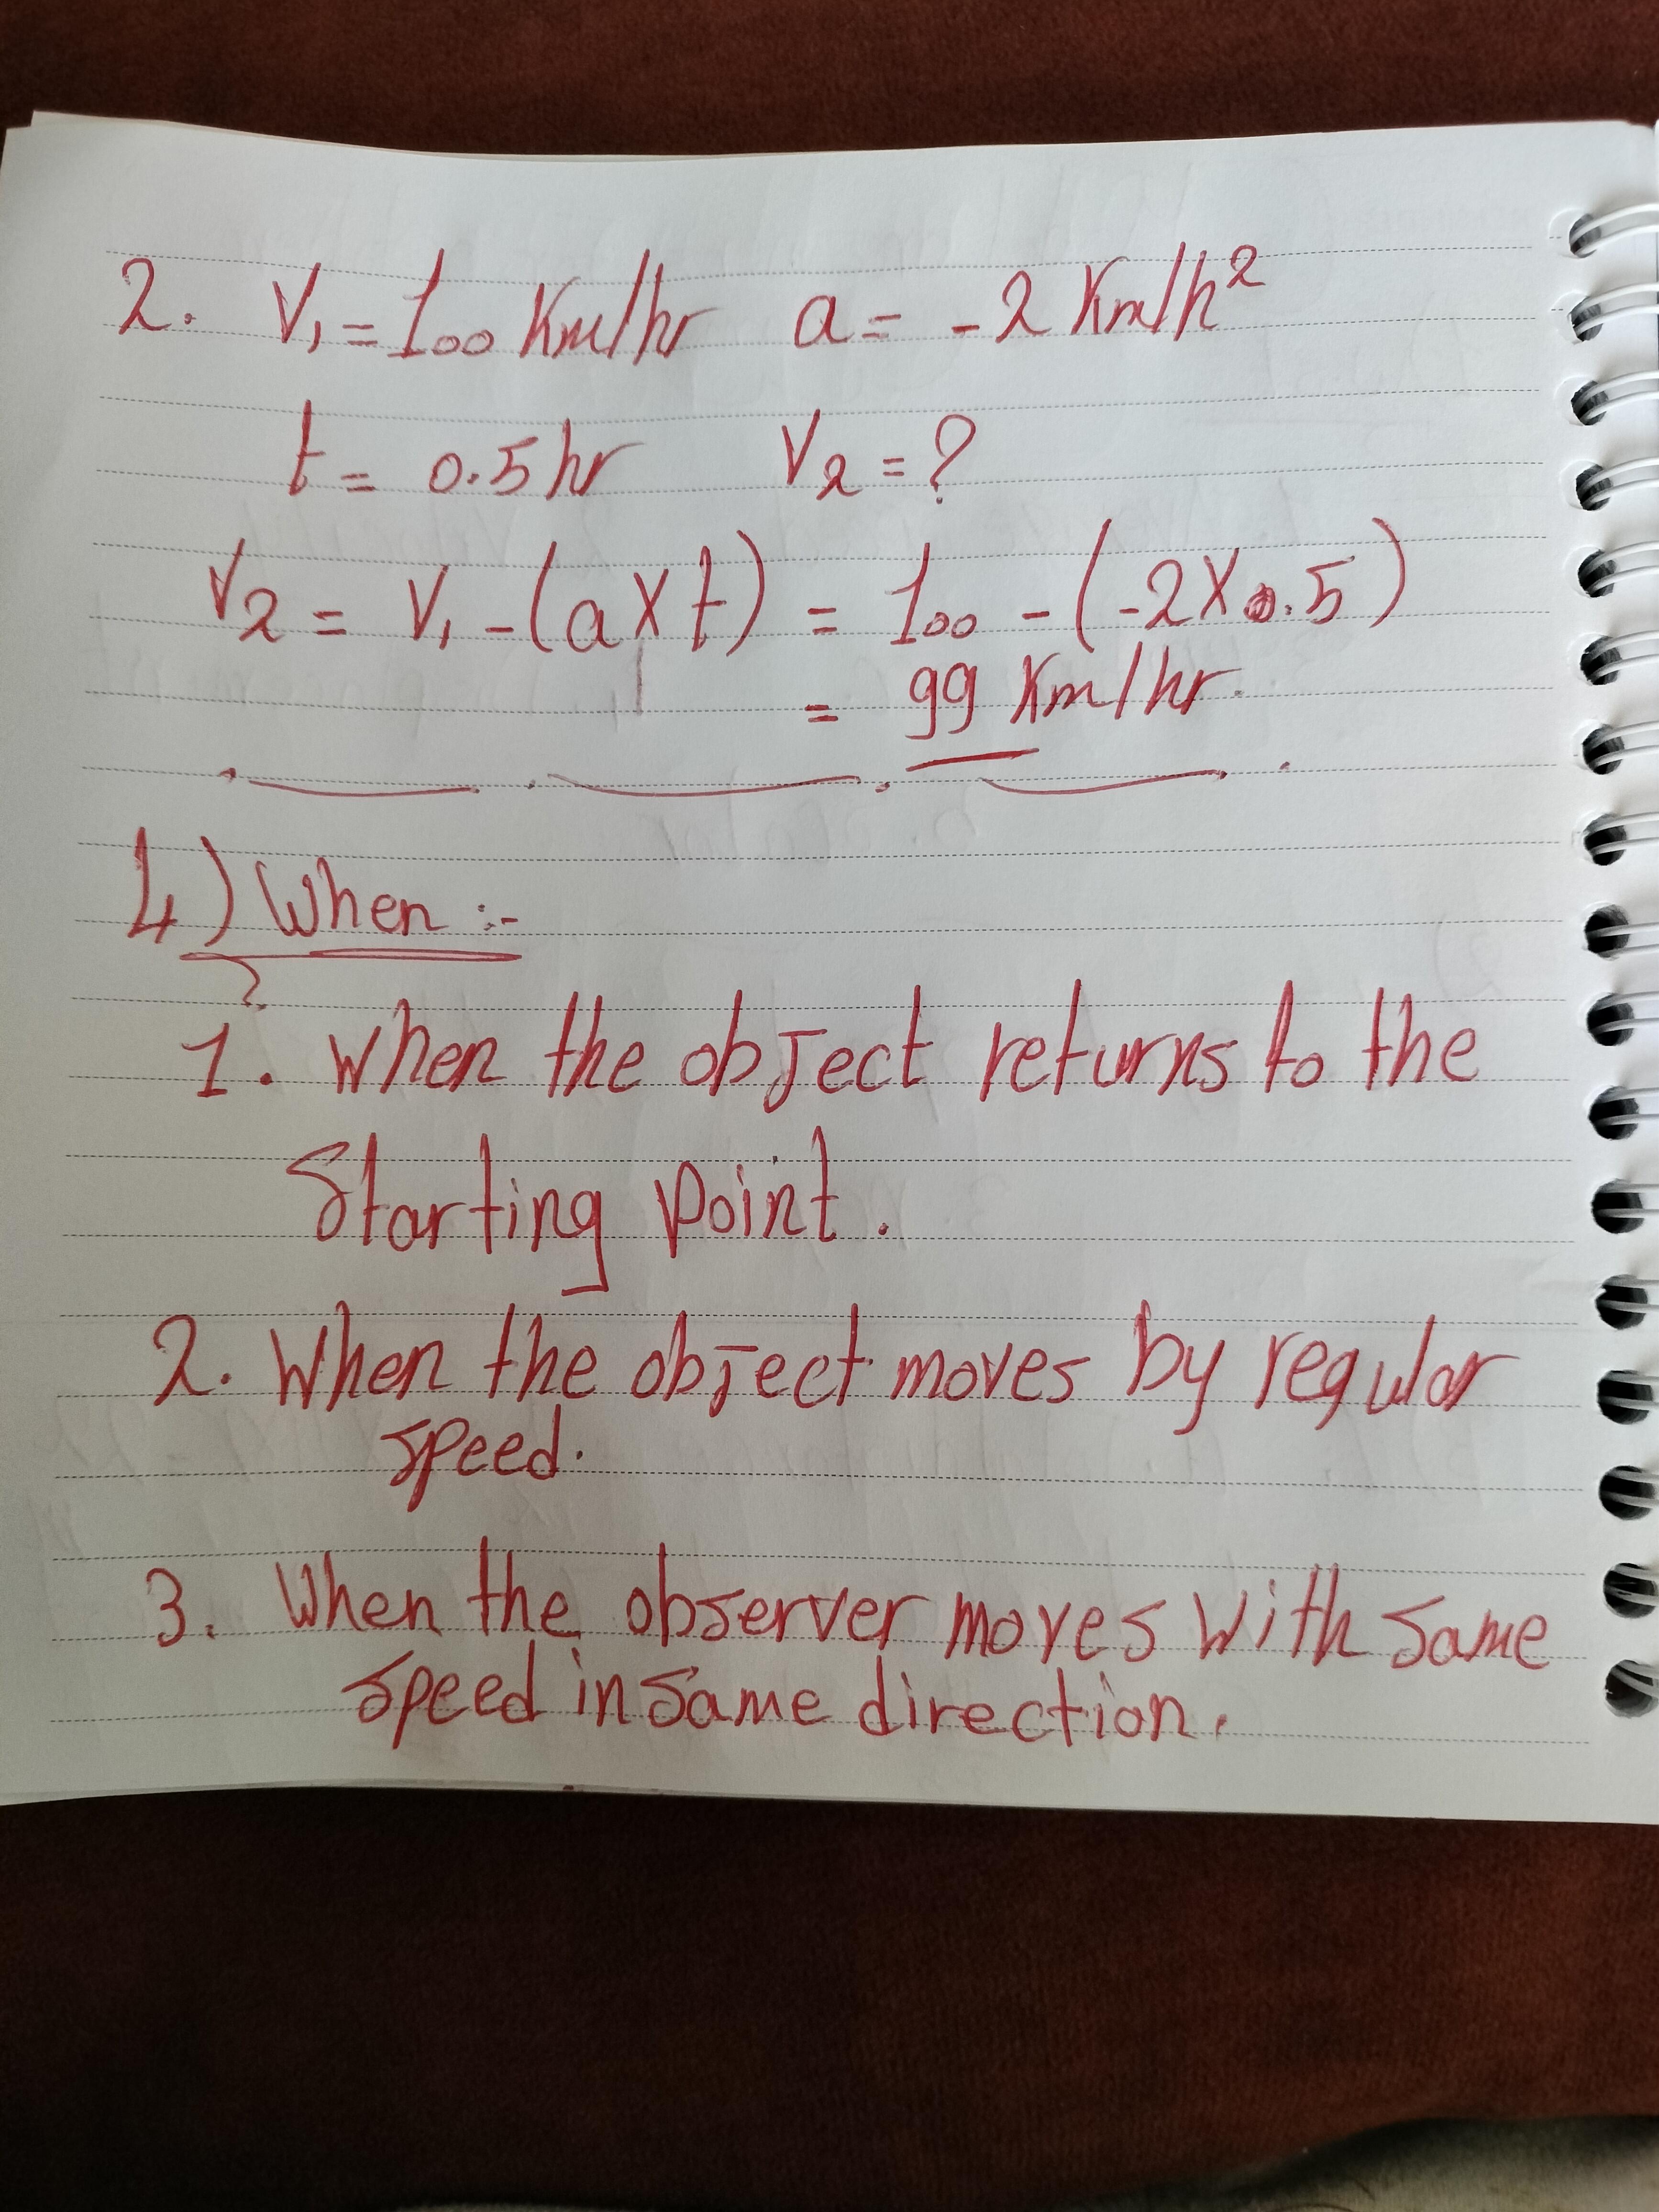 2. V₁ = 100 Km/hr a = -2 Km/h²
t = 0.5 hr V₂ = ?
V₂ = V₁ - (a X t) = 100 - (-2 X 0.5)
= 99 Km/hr.
4) When :-
1. When the object returns to the
Starting point.
2. When the object moves by regular
speed.
3. When the observer moves with same
speed in same direction.